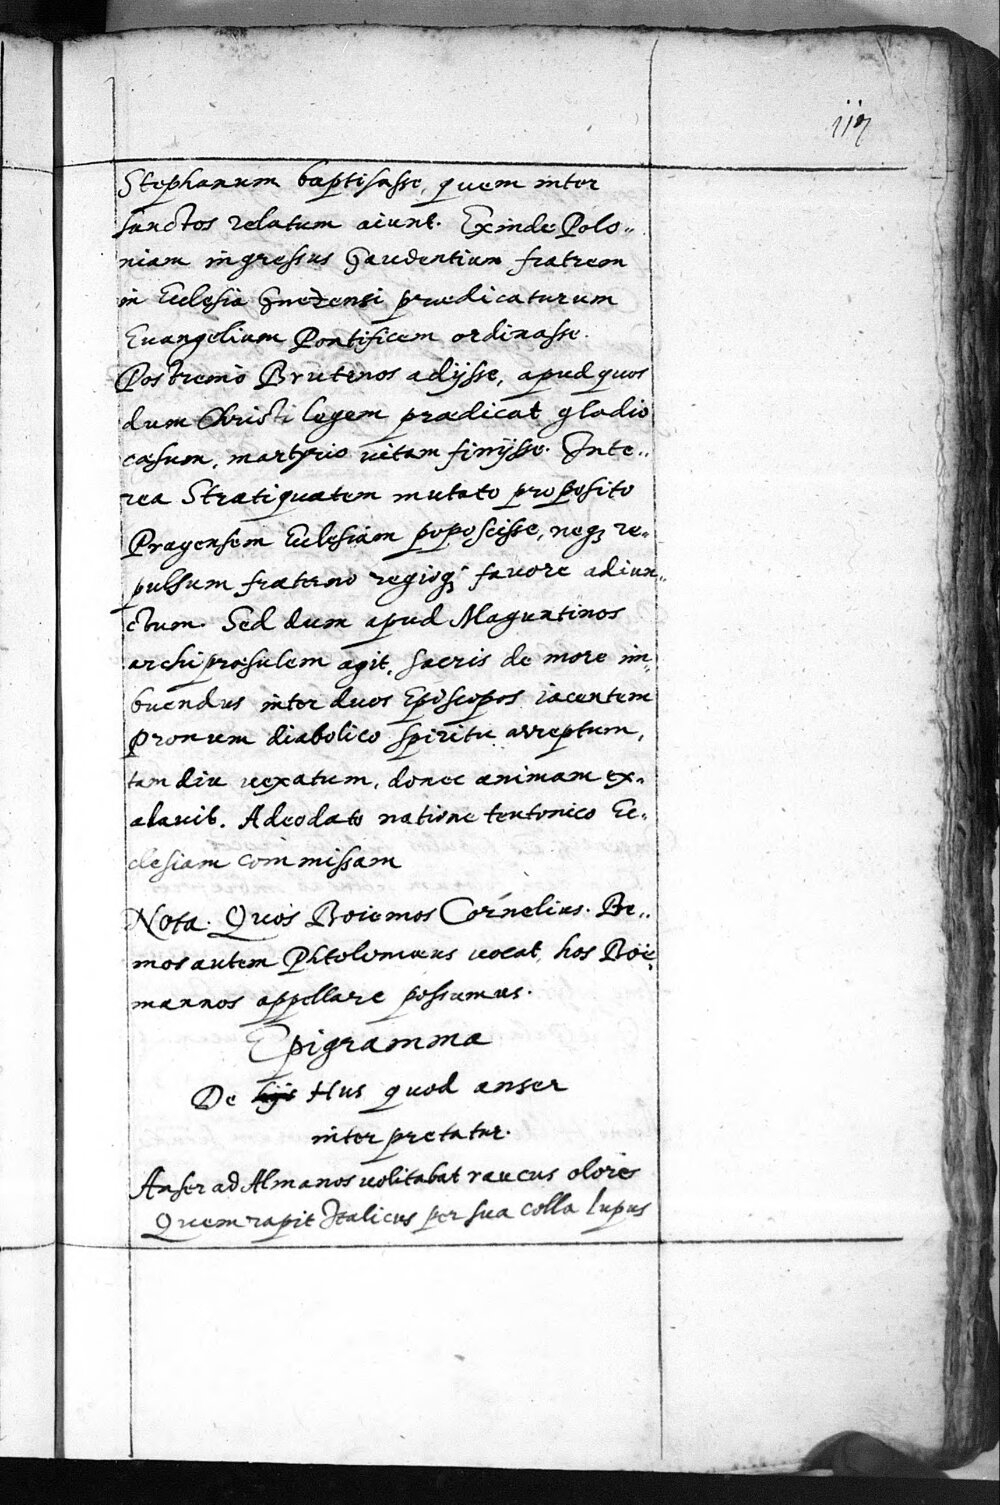 Stephanum baptisasse, quem inter
sanctos relatum aiunt. Exinde Polo„
niam ingressus Gaudentium fratrem
in Eclesia Gnezensi prædicaturum
Euangelium Pontificem ordinasse.
Postremò Brutenos adijsse, apud quos
dum Christi legem prædicat gladio
cæsum, martyrio vitam finijsse. Inte„
rea Stratiquatem mutato proposito
Pragensem Eclesiam poposcisse, neq; re„
pulsum fraterno regioq; fauore adiun„
ctum. Sed dum apud Maguntinos
archipræsulem agit, sacris de more im„
buendus inter duos Episcopos iacentem
pronum diabolico spiritu arreptum,
tam diu vexatum, donec animam ex„
alauit. Adeodato natione teutonico Ec„
clesiam commissam
Nota. Quos Boiemos Cornelius. Be„
mos autem Phtolomæus vocat, hos Boie„
mannos appellare possumus.
Epigramma
De Hus quod anser
interpretatur.
Anser ad Almanos volitabat raucus olores
Quem rapit Italicus per sua colla lupus